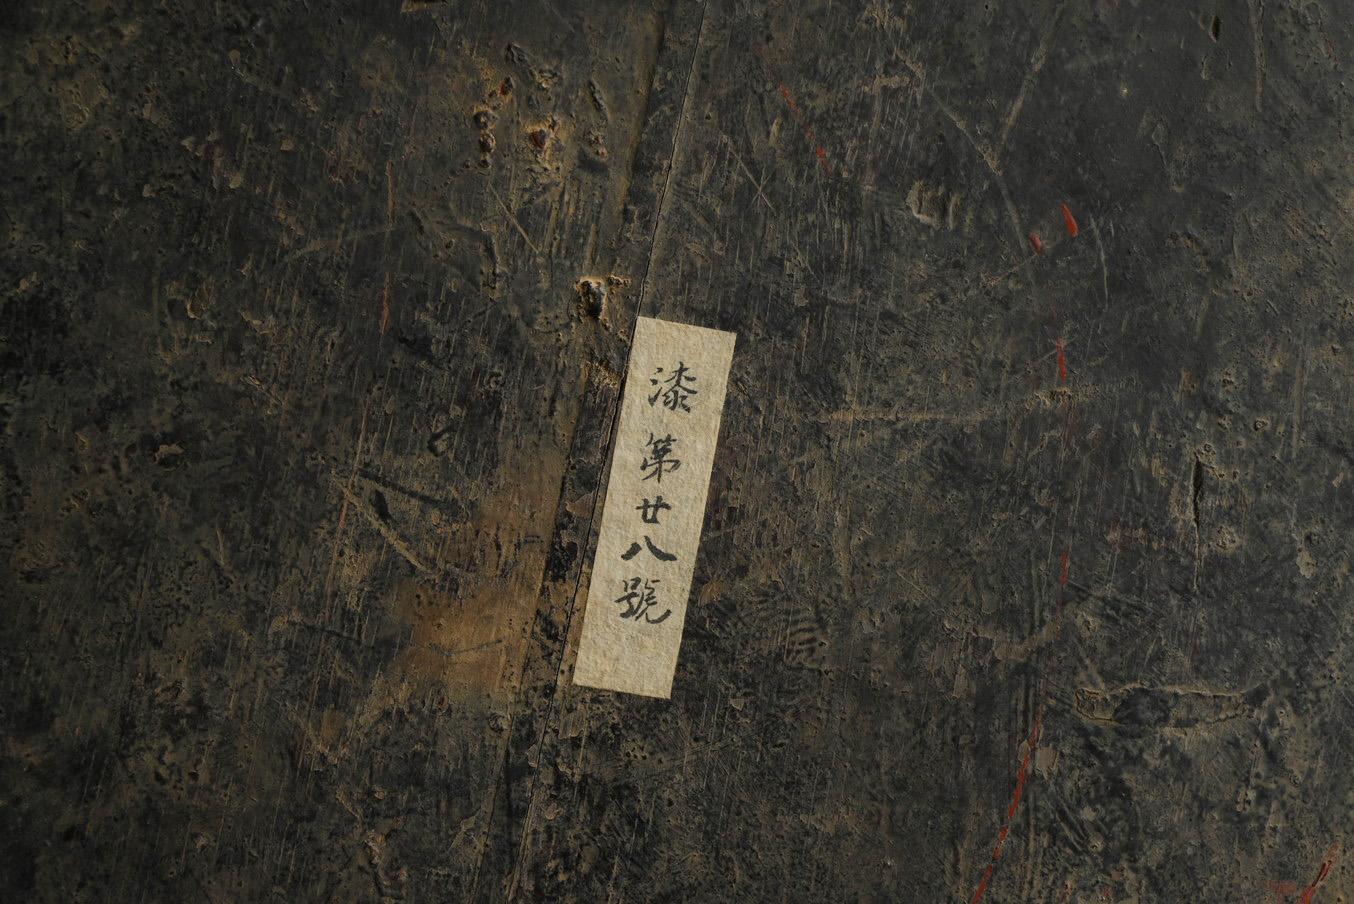 漆第廿八號